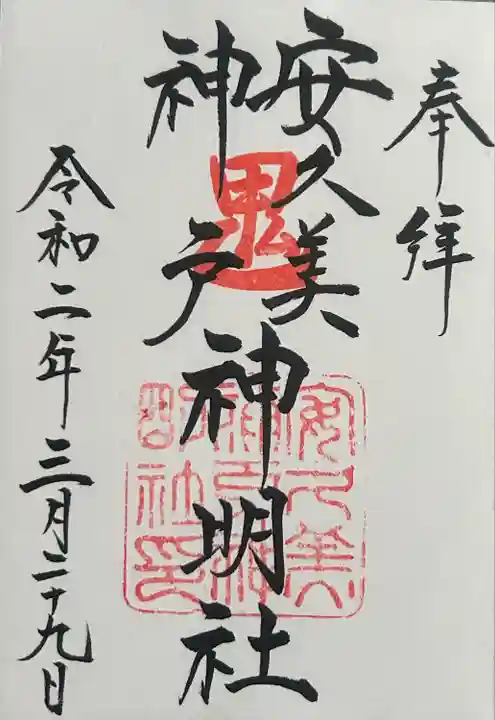 奉拝
安久美
神戸
神明社
鬼
安久美神戸神明社印
令和二年三月二十九日